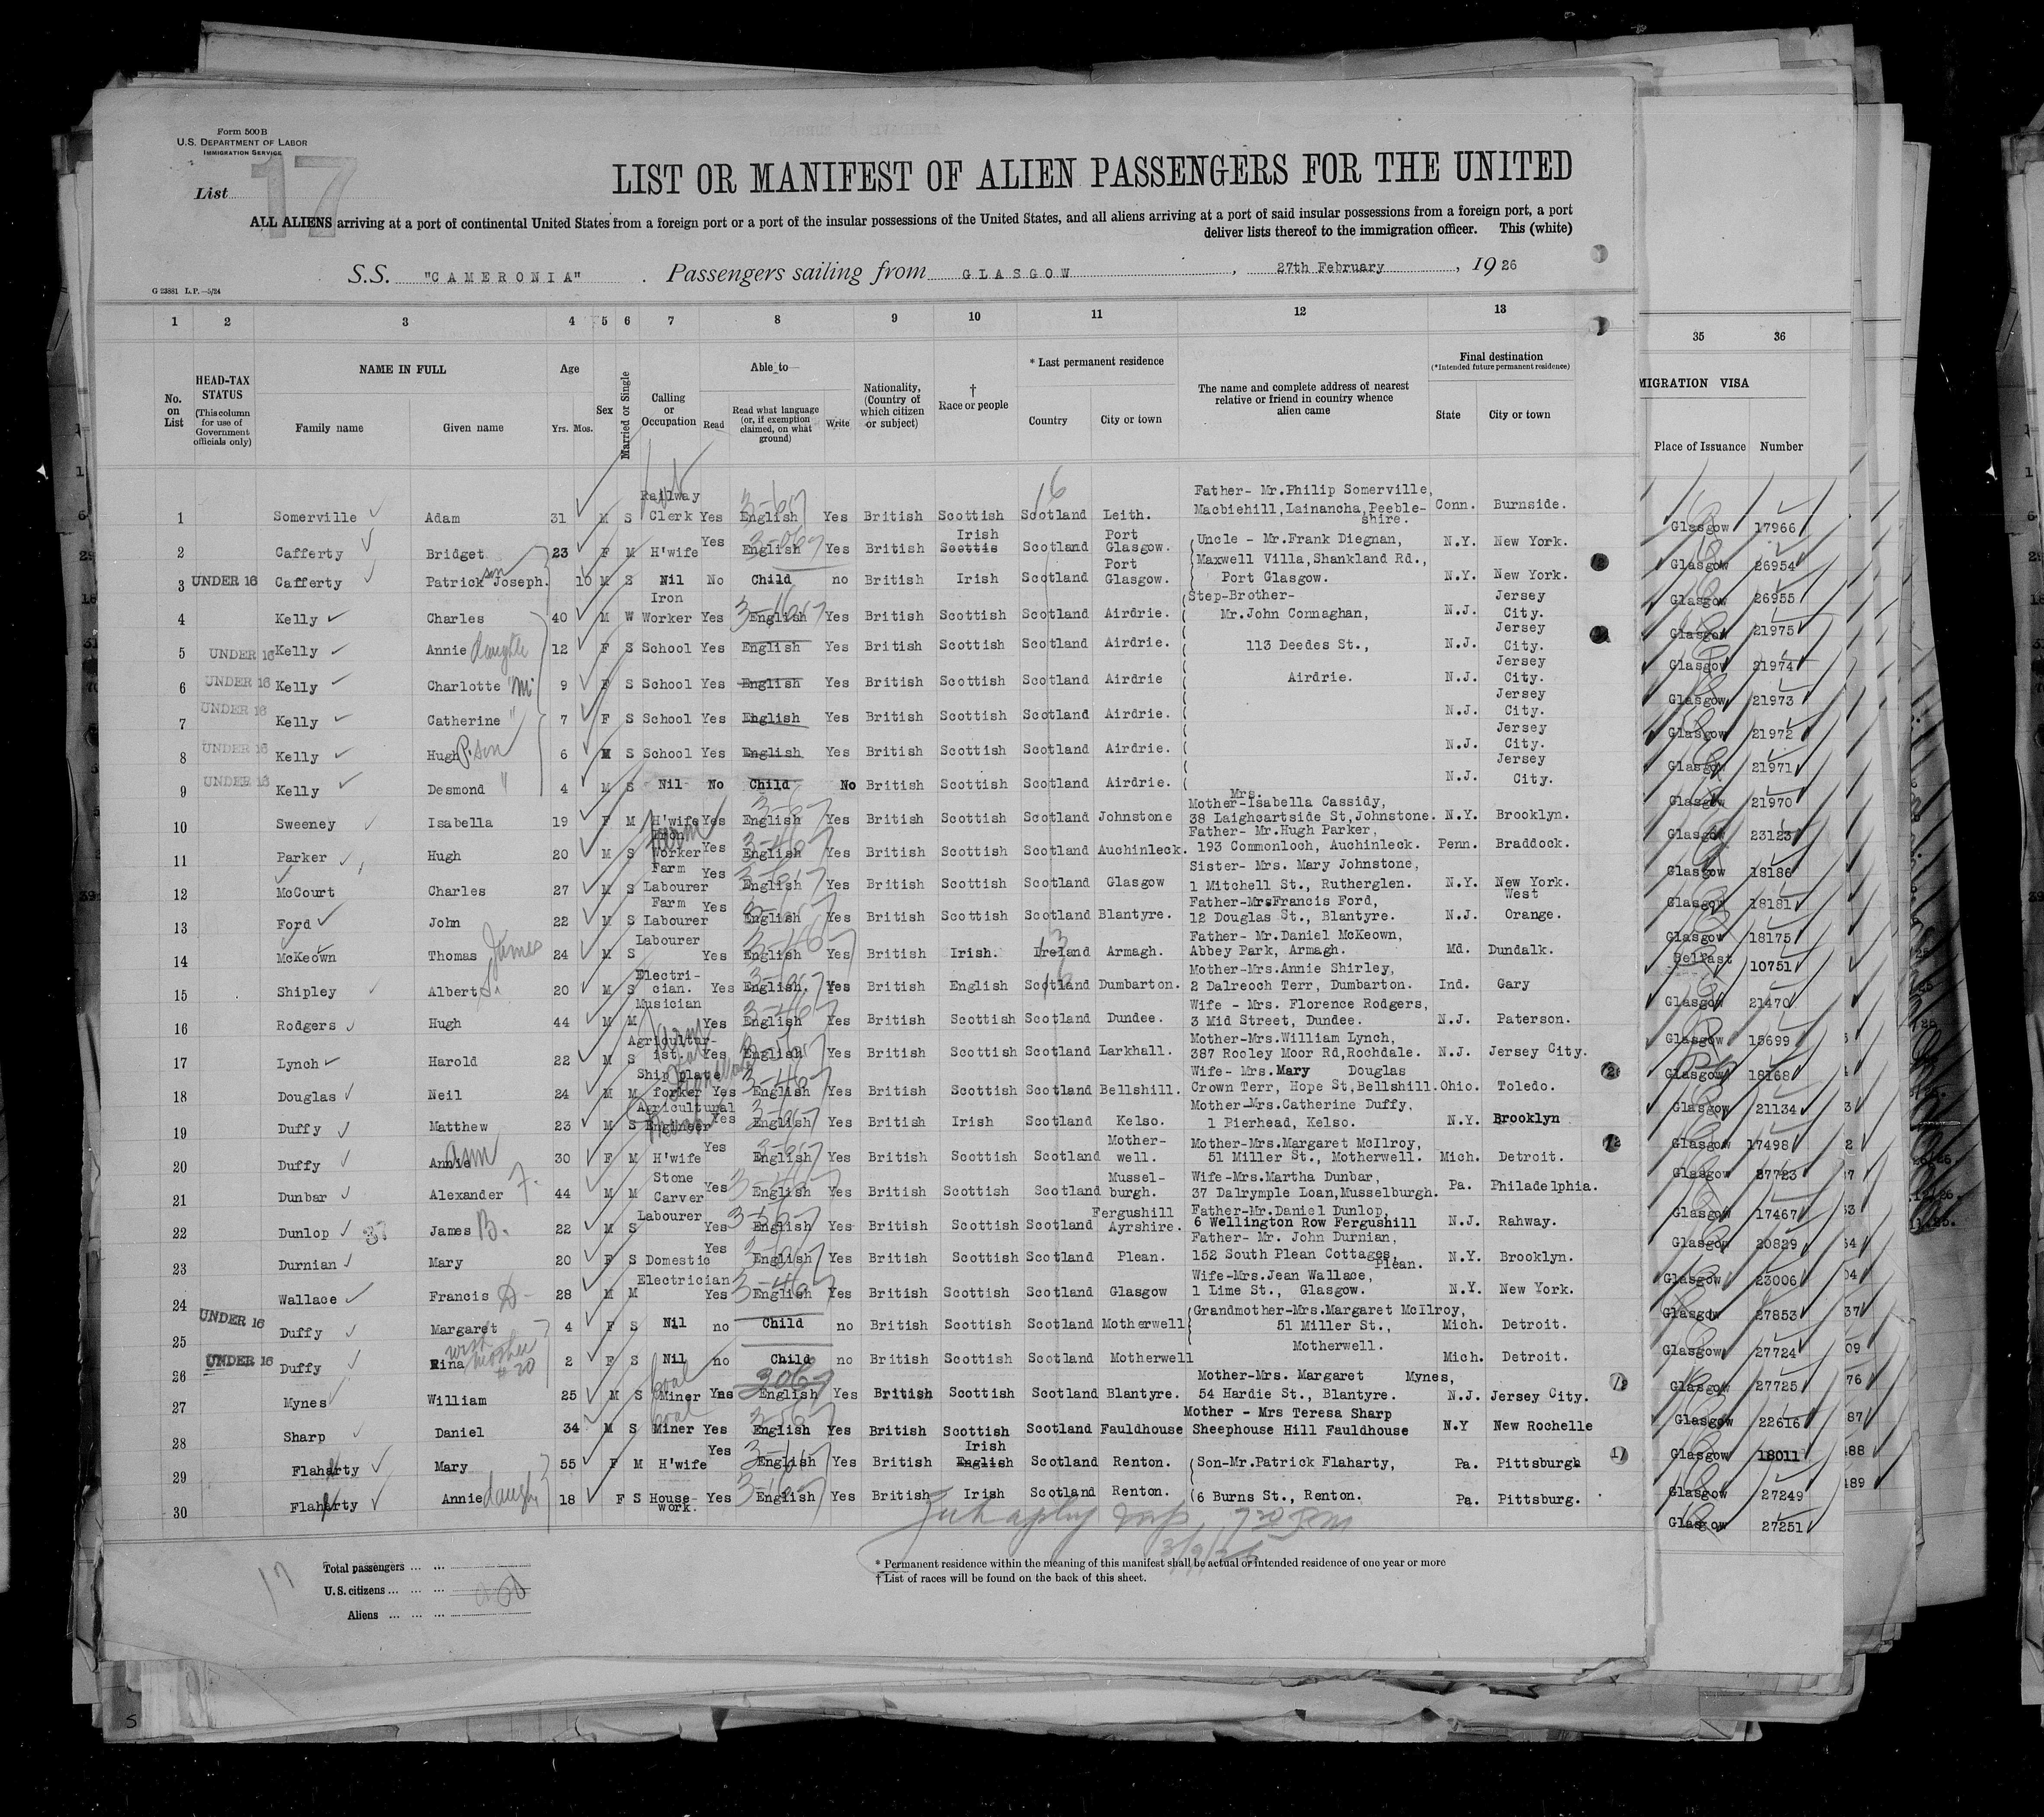 Form 500B
U.S. DEPARTMENT OF LABOR
IMMIGRATION SERVICE
List 17
LIST OR MANIFEST OF ALIEN PASSENGERS FOR THE UNITED
ALL ALIENS arriving at a port of continental United States from a foreign port or a port of the insular possessions of the United States, and all aliens arriving at a port of said insular possessions from a foreign port, a port
deliver lists thereof to the immigration officer. This (white)
S.S. "CAMERONIA". Passengers sailing from GLASGOW, 27th February, 1926
G 23881 L.P.—5/24
1 2 3 4 5 6 7 8 9 10 11 12 13 35 36
No. on List
HEAD-TAX STATUS (This column for use of Government officials only)
NAME IN FULL Family name Given name
Age Yrs. Mos.
Sex
Married or Single
Calling or Occupation
Able to— Read Read what language (or, if exemption claimed, on what ground) Write
Nationality, (Country of which citizen or subject)
† Race or people
* Last permanent residence Country City or town
The name and complete address of nearest relative or friend in country whence alien came
Final destination (*Intended future permanent residence) State City or town
MIGRATION VISA Place of Issuance Number
1 Somerville Adam 31 M S Railway Clerk Yes English Yes British Scottish Scotland Leith. Father- Mr.Philip Somerville, Macbiehill,Lainancha,Peebleshire. Conn. Burnside. Glasgow 17966
2 Cafferty Bridget 23 F M H'wife Yes English Yes British Irish Scottis Scotland Port Glasgow. Uncle - Mr.Frank Diegnan, N.Y. New York. Glasgow 26954
3 UNDER 16 Cafferty Patrick Joseph. son 10 M S Nil No Child no British Irish Scotland Port Glasgow. Maxwell Villa,Shankland Rd., Port Glasgow. N.Y. New York. Glasgow 26955
4 Kelly Charles 40 M W Iron Worker Yes English Yes British Scottish Scotland Airdrie. Step-Brother- Mr.John Connaghan, N.J. Jersey City. Glasgow 21975
5 UNDER 16 Kelly Annie daughte 12 F S School Yes English Yes British Scottish Scotland Airdrie. 113 Deedes St., N.J. Jersey City. Glasgow 21974
6 UNDER 16 Kelly Charlotte " M. 9 F S School Yes English Yes British Scottish Scotland Airdrie Airdrie. N.J. Jersey City. Glasgow 21973
7 UNDER 16 Kelly Catherine " 7 F S School Yes English Yes British Scottish Scotland Airdrie. N.J. Jersey City. Glasgow 21972
8 UNDER 16 Kelly Hugh P. son 6 M S School Yes English Yes British Scottish Scotland Airdrie. N.J. Jersey City. Glasgow 21971
9 UNDER 16 Kelly Desmond " 4 M S Nil No Child No British Scottish Scotland Airdrie. N.J. Jersey City. Glasgow 21970
10 Sweeney Isabella 19 F M H'wife Yes English Yes British Scottish Scotland Johnstone Mother-Mrs. Isabella Cassidy, 38 Laighcartside St,Johnstone. N.Y. Brooklyn. Glasgow 23123
11 Parker Hugh 20 M S Iron Worker Yes English Yes British Scottish Scotland Auchinleck. Father- Mr.Hugh Parker, 193 Commonloch, Auchinleck. Penn. Braddock. Glasgow 18186
12 McCourt Charles 27 M S Farm Labourer Yes English Yes British Scottish Scotland Glasgow Sister- Mrs. Mary Johnstone, 1 Mitchell St., Rutherglen. N.Y. New York. Glasgow 18181
13 Ford John 22 M S Farm Labourer Yes English Yes British Scottish Scotland Blantyre. Father-MrsFrancis Ford, 12 Douglas St., Blantyre. N.J. West Orange. Glasgow 18175
14 McKeown Thomas James 24 M S Labourer Yes English Yes British Irish. Ireland Armagh. Father- Mr.Daniel McKeown, Abbey Park, Armagh. Md. Dundalk. Belfast 10751
15 Shipley Albert S. 20 M S Electrician. Yes English. Yes British English Scotland Dumbarton. Mother-Mrs.Annie Shirley, 2 Dalreoch Terr, Dumbarton. Ind. Gary Glasgow 21470
16 Rodgers Hugh 44 M M Musician Yes English Yes British Scottish Scotland Dundee. Wife - Mrs. Florence Rodgers, 3 Mid Street, Dundee. N.J. Paterson. Glasgow 15699
17 Lynch Harold 22 M S Agriculturist. Yes English Yes British Scottish Scotland Larkhall. Mother-Mrs.William Lynch, 387 Rooley Moor Rd,Rochdale. N.J. Jersey City. Glasgow 18168
18 Douglas Neil 24 M M Ship plate forker Yes English Yes British Scottish Scotland Bellshill. Wife- Mrs.Mary Douglas Crown Terr, Hope St,Bellshill. Ohio. Toledo. Glasgow 21134
19 Duffy Matthew 23 M S Agricultural Engineer Yes English Yes British Irish Scotland Kelso. Mother-Mrs.Catherine Duffy, 1 Pierhead, Kelso. N.Y. Brooklyn Glasgow 17498
20 Duffy Annie 30 F M H'wife Yes English Yes British Scottish Scotland Motherwell. Mother-Mrs.Margaret McIlroy, 51 Miller St., Motherwell. Mich. Detroit. Glasgow 27723
21 Dunbar Alexander F. 44 M M Stone Carver Yes English Yes British Scottish Scotland Musselburgh. Wife-Mrs.Martha Dunbar, 37 Dalrymple Loan,Musselburgh. Pa. Philadelphia. Glasgow 17467
22 Dunlop James B. 22 M S Labourer Yes English Yes British Scottish Scotland Fergushill Ayrshire. Father-Mr.Daniel Dunlop, 6 Wellington Row Fergushill N.J. Rahway. Glasgow 20829
23 Durnian Mary 20 F S Domestic Yes English Yes British Scottish Scotland Plean. Father- Mr. John Durnian, 152 South Plean Cottages, Plean. N.Y. Brooklyn. Glasgow 23006
24 Wallace Francis D- 28 M M Electrician Yes English Yes British Scottish Scotland Glasgow Wife-Mrs.Jean Wallace, 1 Lime St., Glasgow. N.Y. New York. Glasgow 27853
25 UNDER 16 Duffy Margaret 4 F S Nil no Child no British Scottish Scotland Motherwell Grandmother-Mrs.Margaret McIlroy, 51 Miller St., Mich. Detroit. Glasgow 27724
26 UNDER 16 Duffy Rina with mother #20 2 F S Nil no Child no British Scottish Scotland Motherwell Motherwell. Mich. Detroit. Glasgow 27725
27 Mynes William 25 M S Coal Miner Yes English Yes British Scottish Scotland Blantyre. Mother-Mrs. Margaret Mynes, 54 Hardie St., Blantyre. N.J. Jersey City. Glasgow 22616
28 Sharp Daniel 34 M S Coal Miner Yes English Yes British Scottish Scotland Fauldhouse Mother - Mrs Teresa Sharp Sheephouse Hill Fauldhouse N.Y New Rochelle Glasgow 18011
29 Flaharty Mary 55 F M H'wife Yes English Yes British Irish English Scotland Renton. Son-Mr.Patrick Flaharty, Pa. Pittsburgh Glasgow 27249
30 Flaharty Annie daugh 18 F S Housework. Yes English Yes British Irish Scotland Renton. 6 Burns St., Renton. Pa. Pittsburg. Glasgow 27251
Total passengers ... ...
U.S. citizens ... ... ...
Aliens ... ... ...
17
* Permanent residence within the meaning of this manifest shall be actual or intended residence of one year or more
† List of races will be found on the back of this sheet.